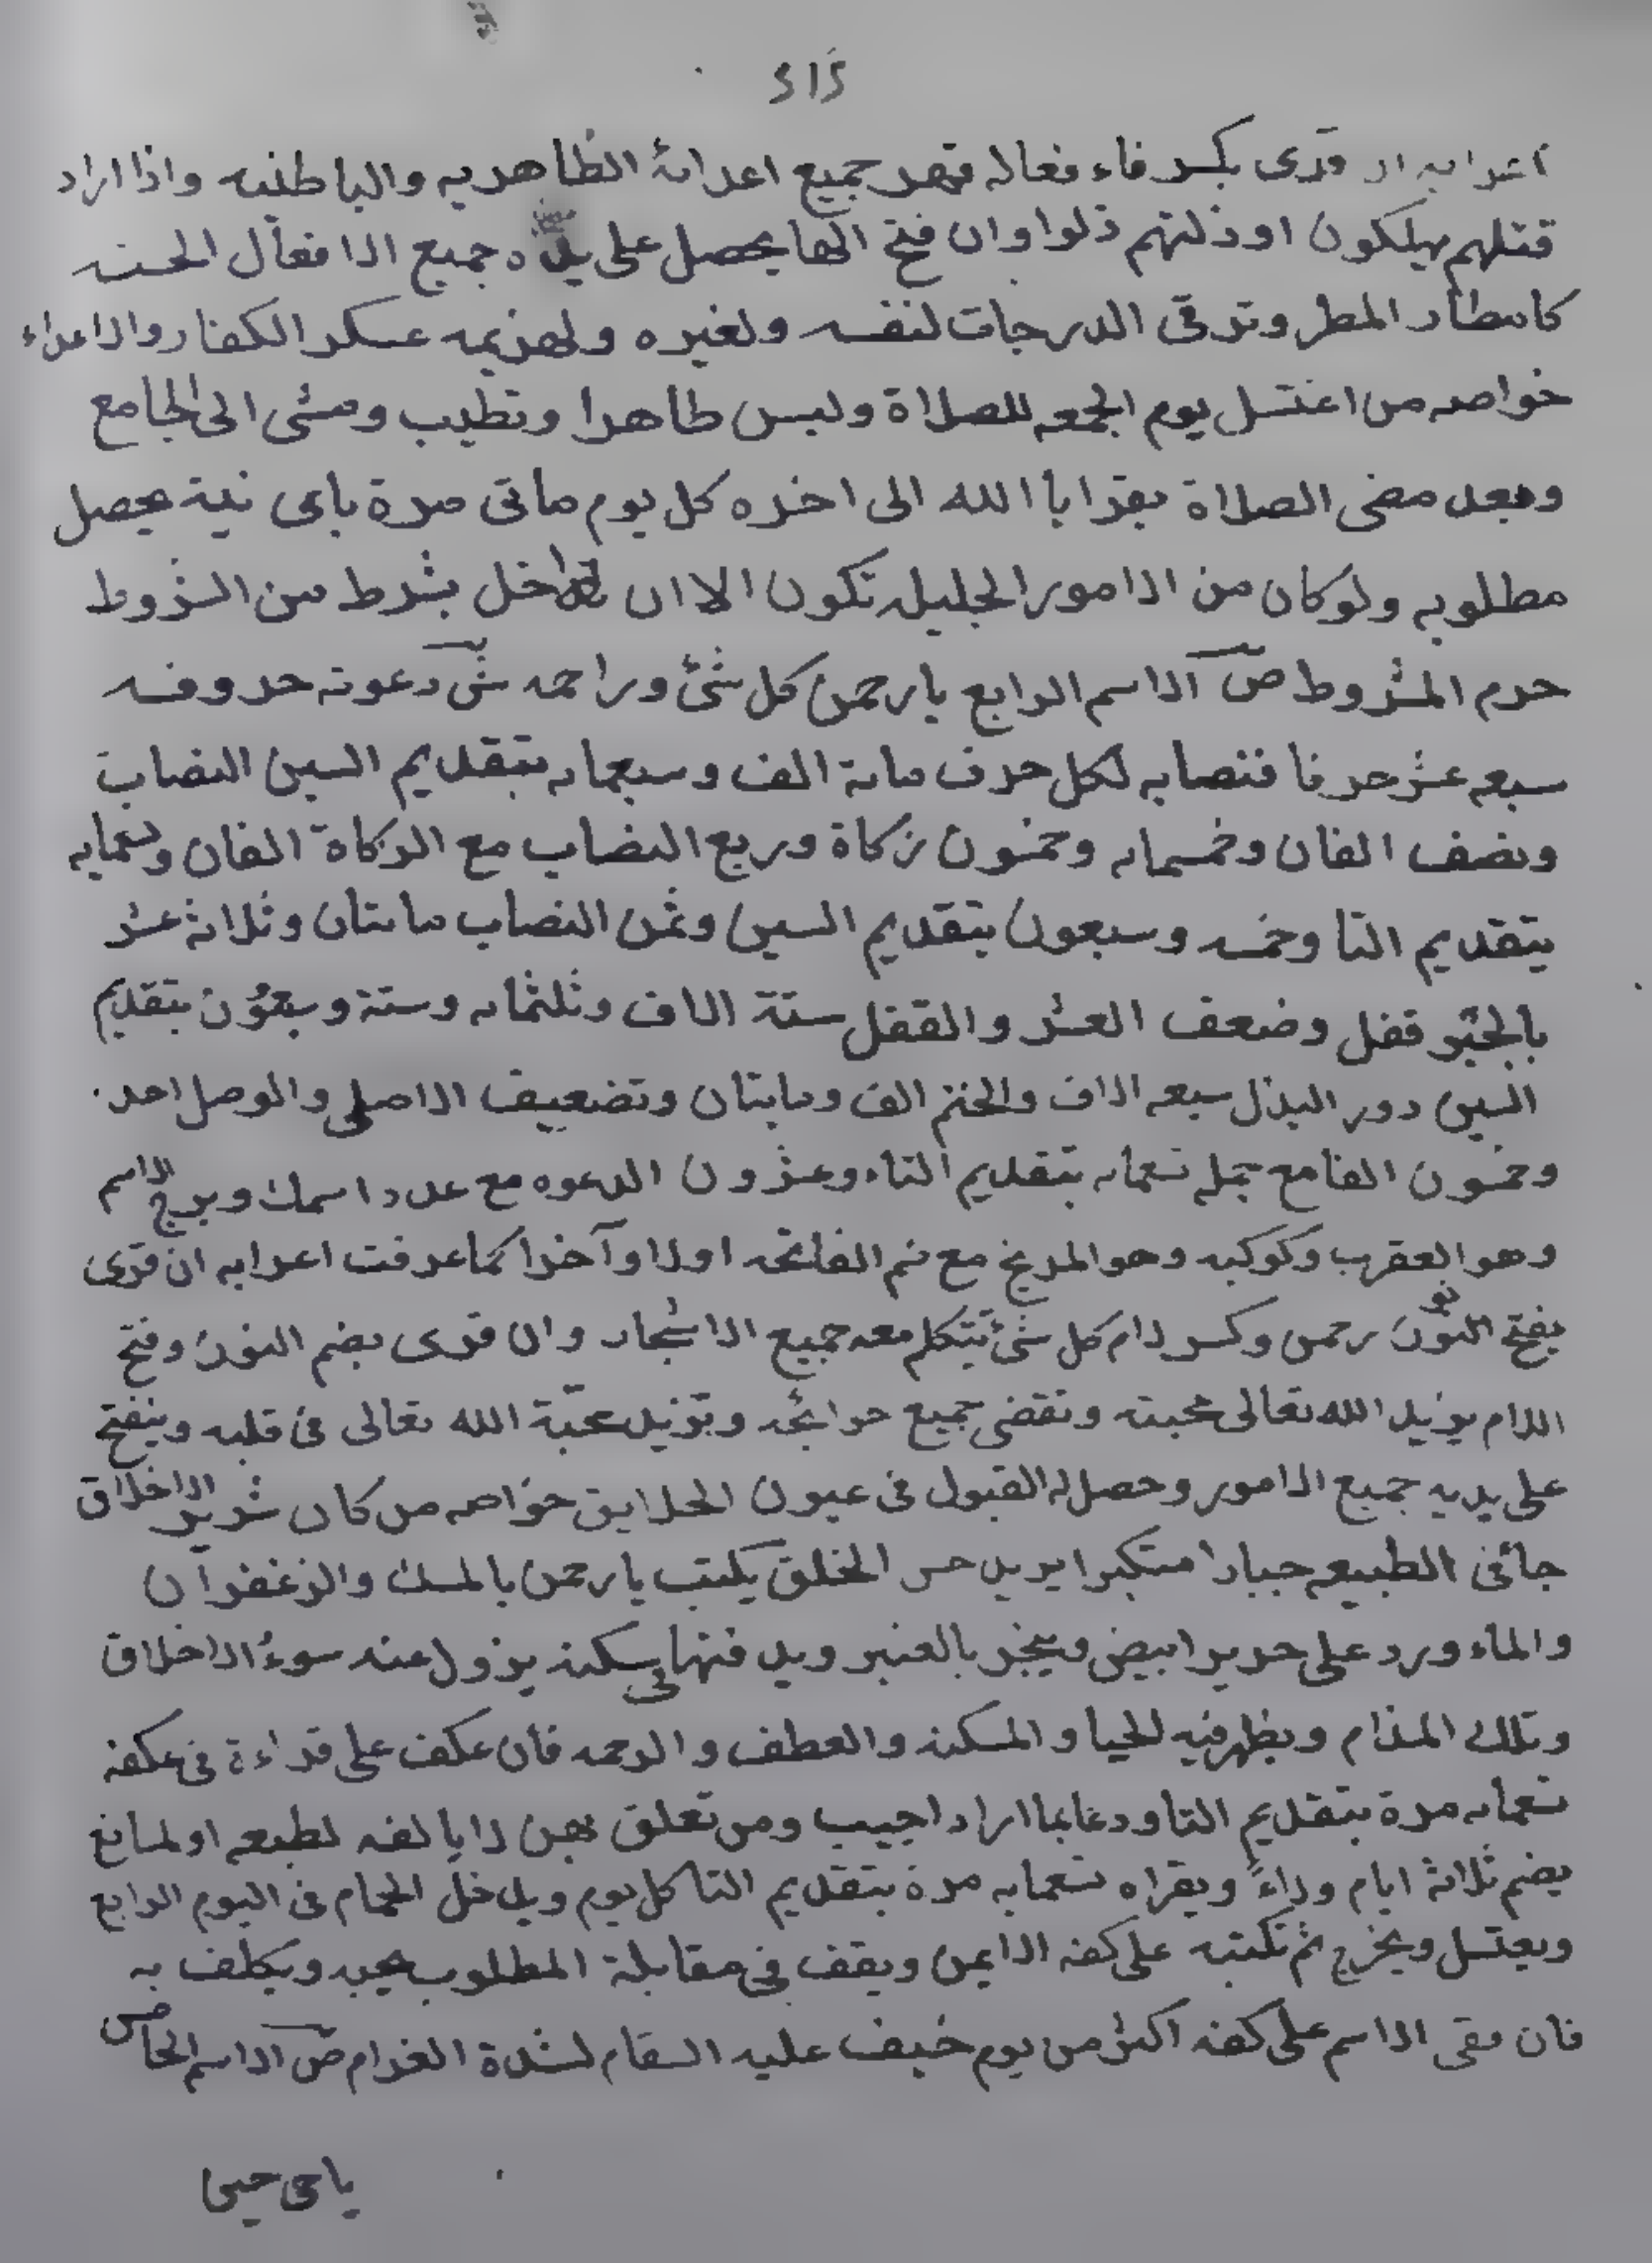 ٢١٥
اعرابه ان قرى بكسر فاء فعاله قهر جميع اعدائه الظاهريه والباطنيه واذا اراد
قتلهم يهلكون او ذلتهم ذلوا وان فتح الها يحصل على يده جميع الافعال الحسنه
كامطار المطر وترقى الدرجات لنفسه ولغيره ولهزيمه عسكر الكفار والاعداء
خواصه من اغتسل يوم الجمعه للصلاة ولبس طاهرا وتطيب ومشى الى الجامع
وبعد مضى الصلاة يقرا يا الله الى اخره كل يوم مائتى مرة باى نية يحصل
مطلوبه ولو كان من الامور الجليله تكون الا ان اخل بشرط من الشروط
حرم المشروط ص الاسم الرابع يا رحمن كل شئ وراحمه ش دعوته حروفه
سبعه عشر حرفا فنصابه لكل حرف مائة الف وسبعمائه بتقديم السين النصاب
ونصف الفان وخمسمائه وخمسون زكاة وربع النضاب مع الزكاة الفان وتسعمايه
بتقديم التا وخمسه وسبعون بتقديم السين وثمن النصاب مائتان وثلاثة عشر
بالجبر قفل وضعف العشر والقفل ستة الاف وثلثمائه وستة وسبعون بتقديم
السين دور البذل سبعه الاف والختم الف ومايتان وتضعيف الاصلى والوصل احد
وخمسون الفا مع جمله تسعمائه بتقديم التاء وعشرون الدعوه مع عدد اسمك وبرج الاسم
وهو العقرب وكوكبه وهو المريخ مع ضم الفاتحه اولا وآخرا كما عرفت اعرابه ان قرى
بفتح النون رحمن وكسر لام كل شئ يتكلم معه جميع الاشجار وان قرى بضم النون وفتح
اللام يزيد الله تعالى محبته وتقضى جميع حوائجه وتزيد محبّة الله تعالى فى قلبه وينفتح
على يديه جميع الامور وحصل له القبول فى عيون الخلايق خواصه من كان شرير الاخلاق
جافى الطبيعه جبارا متكبرا يريد حسن الخلق يكتب يا رحمن بالمسك والزعفران
والماء ورد على حرير ابيض ويبخر بالعنبر ويدفنها فى سكنه يزول عنه سوء الاخلاق
وتلك المذام ويظهر فيه الحيا والمسكنه والعطف والرحمه فان عكف على قراءة فى عكفه
تسعمائه مرة بتقديم التا ودعا بما اراد اجيب ومن تعلق بمن لا يالفه لطبعه او لمانع
يضم ثلاثة ايام ولاءً ويقراه تسعمايه مرة بتقديم التا كل يوم ويدخل الحمام فى اليوم الرابع
ويغتسل ويخرج ثم تكتبه على كفه الايمن ويقف فى مقابلة المطلوب يحبه ويكلف به
فان بقى الاسم على كفه اكثر من يوم خيف عليه السقام لشدة الغرام ص الاسم الخامس
يا حى حين